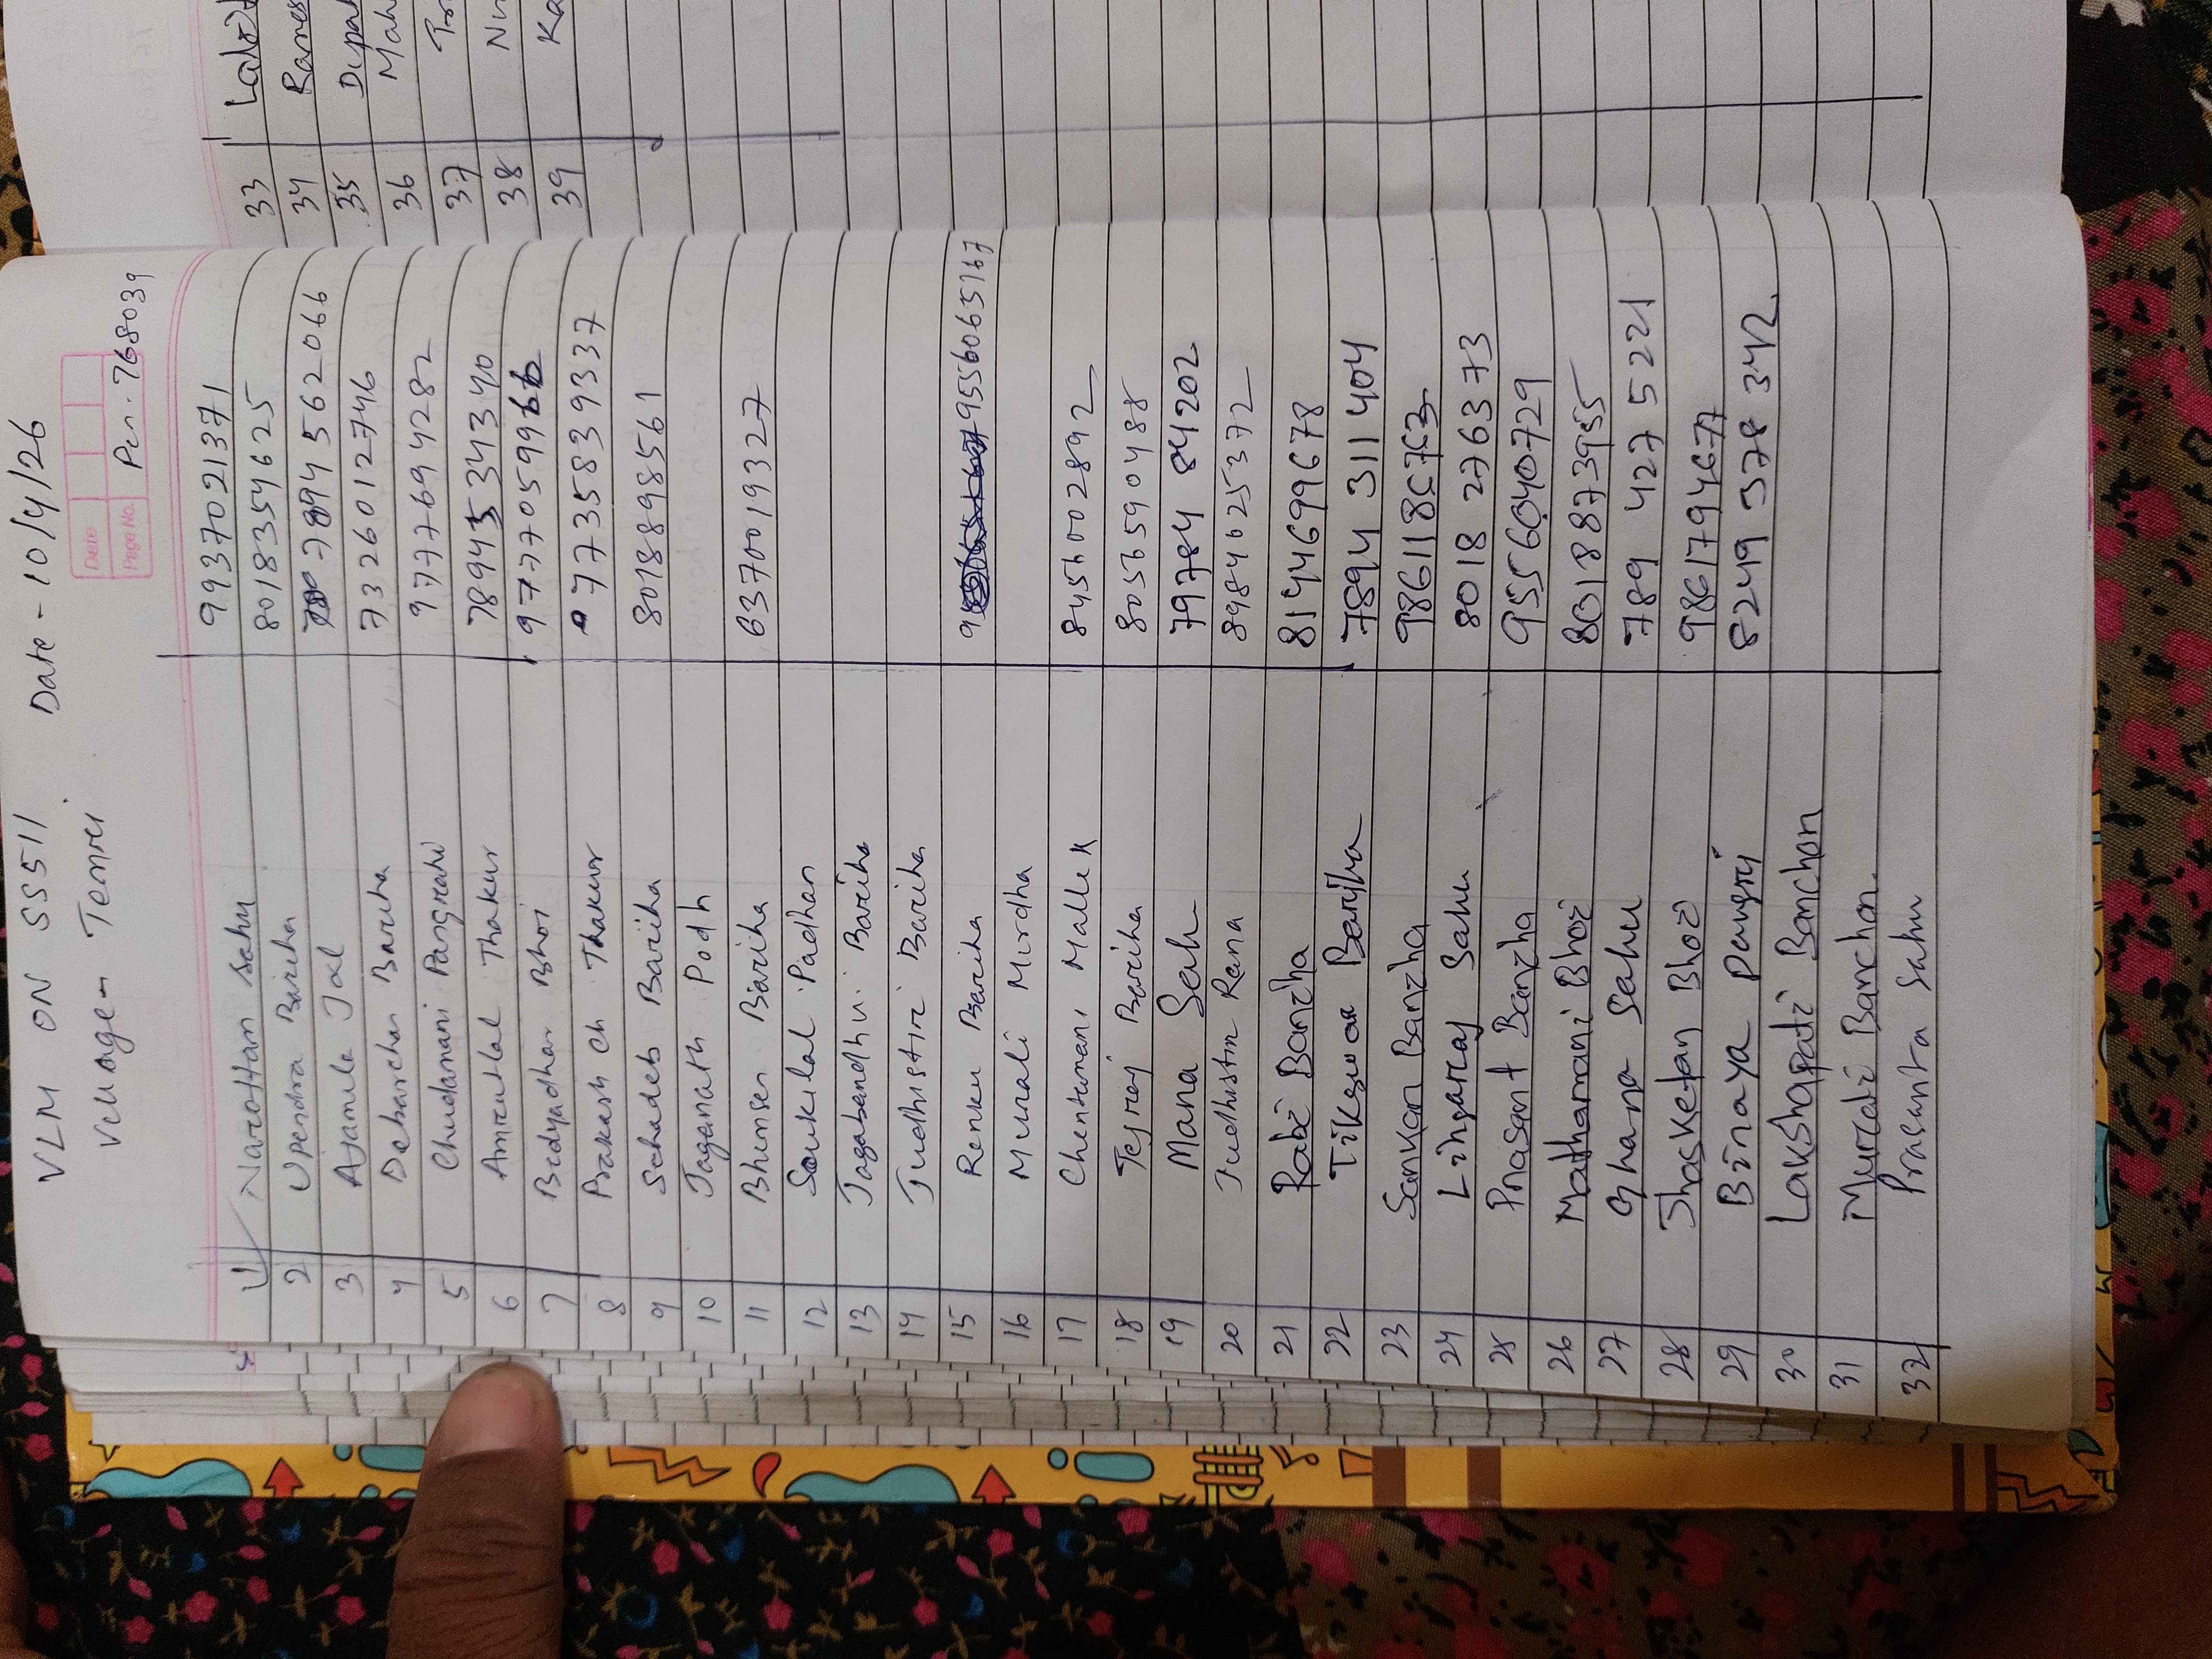 VLM ON SS511 Date - 10/4/26
Villagen Temri Pin. 768039
Date
Page No.
1 Narottam Sahu 9937021371
2 Upendra Bariha 8018354625
3 Ajamila Jal 7894562066
4 Debarchan Baruha 7326012746
5 Chudamani Panigrahi 9777694282
6 Amrutlal Thakur 7894534340
7 Bidyadhar Bhoi 9777059966
8 Prakash Ch Thakur 7735839337
9 Sahadeb Bariha 8018898561
10 Jaganath Podh
11 Bhimsen Bariha 6370019327
12 Soukilal Padhan
13 Jagabandhu Bariha
14 Judhistir Bariha
15 Renku Bariha 9556065167
16 Murali Mirdha
17 Chentamani Mallik 8456002892
18 Tejraj Bariha 8056590488
19 Mana Sah 79784 84202
20 Judhistir Rana 8984625372
21 Rabi Bariha 8144699678
22 Tikeswar Barjha 7894 311 404
23 Sankar Bariha 986118
24 Lingaraj Sahu 8018 276373
25 Prasant Bariha 9556040729
26 Mathamani Bhoi 8018873955
27 Ghana Sahu 789 427 5221
28 Jhasketan Bhoi 9861794677
29 Binaya Pangri 8249 378 342.
30 Lakshapati Banchor
31 Murali Banchor.
32 Prasanta Sahu
33
34 Rames
35 Dipa
36 Mah
37
38
39 Ka